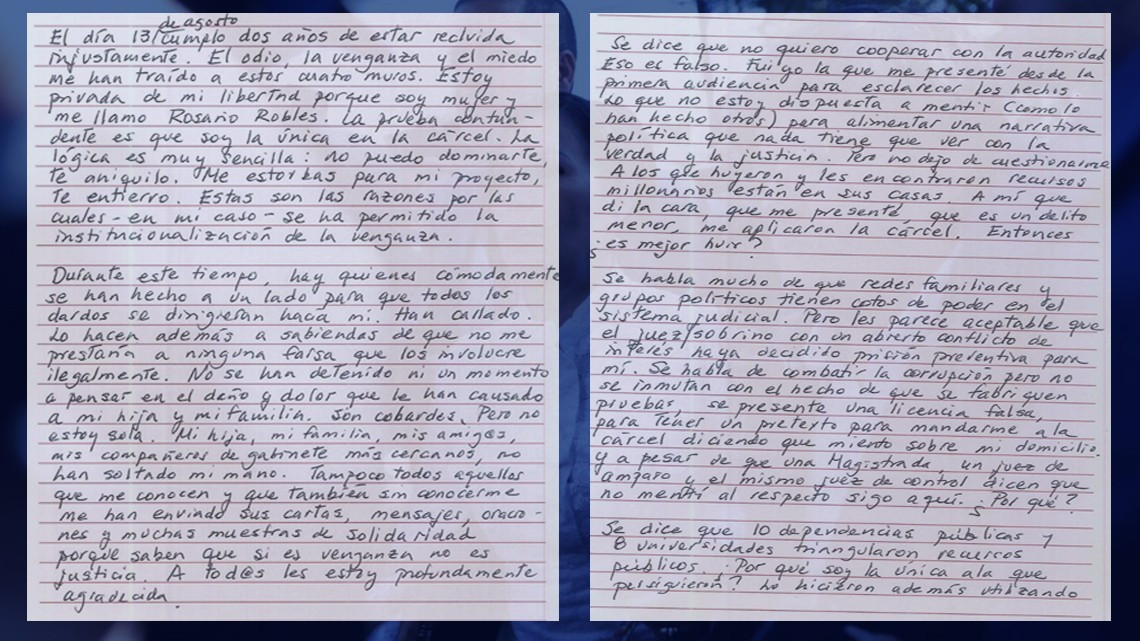 de agosto
El día 13/cumplo dos años de estar recluida
injustamente. El odio, la venganza y el miedo
me han traído a estos cuatro muros. Estoy
privada de mi libertad porque soy mujer y
me llamo Rosario Robles. La prueba contun-
dente es que soy la única en la cárcel. La
lógica es muy sencilla: no puedo dominarte,
te aniquilo. Me estorbas para mi proyecto,
te entierro. Estas son las razones por las
cuales - en mi caso - se ha permitido la
institucionalización de la venganza.
Durante este tiempo, hay quienes cómodamente
se han hecho a un lado para que todos los
dardos se dirigieran hacia mí. Han callado.
Lo hacen además a sabiendas de que no me
prestaría a ninguna farsa que los involucre
ilegalmente. No se han detenido ni un momento
a pensar en el daño y dolor que le han causado
a mi hija y mi familia. Son cobardes. Pero no
estoy sola. Mi hija, mi familia, mis amig@s,
mis compañeros de gabinete más cercanos, no
han soltado mi mano. Tampoco todos aquellos
que me conocen y que también sin conocerme
me han enviado sus cartas, mensajes, oracio-
nes y muchas muestras de solidaridad
porque saben que si es venganza no es
justicia. A tod@s les estoy profundamente
agradecida.
Se dice que no quiero cooperar con la autoridad
Eso es falso. Fui yo la que me presenté desde la
primera audiencia para esclarecer los hechos.
Lo que no estoy dispuesta a mentir (como lo
han hecho otros) para alimentar una narrativa
política que nada tiene que ver con la
verdad y la justicia. Pero no dejo de cuestionarme
A los que huyeron y les encontraron recursos
millonarios están en sus casas. A mí que
di la cara, que me presenté, que es un delito
menor, me aplicaron la cárcel. Entonces
¿es mejor huir?
Se habla mucho de que redes familiares y
grupos políticos tienen cotos de poder en el
sistema judicial. Pero les parece aceptable que
el juez/sobrino con un abierto conflicto de
interés haya decidido prisión preventiva para
mí. Se habla de combatir la corrupción pero no
se inmutan con el hecho de que se fabriquen
pruebas, se presente una licencia falsa,
para tener un pretexto para mandarme a la
cárcel diciendo que miento sobre mi domicilio.
Y a pesar de que una Magistrada, un juez de
amparo y el mismo juez de control dicen que
no mentí al respecto sigo aquí. ¿Por qué?
Se dice que 10 dependencias públicas y
8 universidades triangularon recursos
públicos. ¿Por qué soy la única a la que
persiguieron? Lo hicieron además utilizando